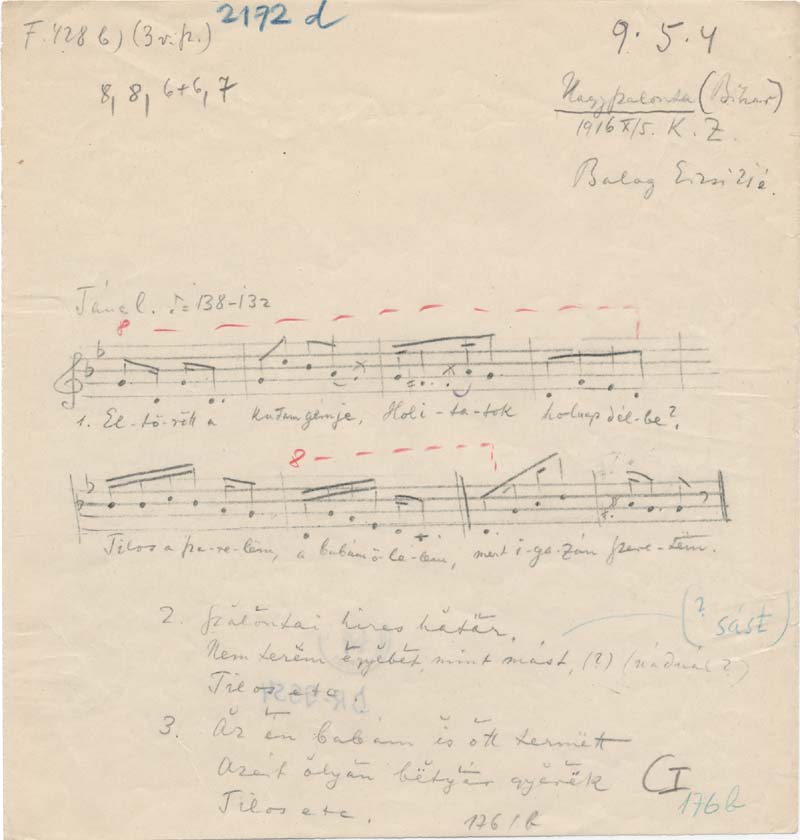 2172 d
F. 428 b) (3 v. fz.)
9. 5. 4
8, 8, 6+6, 7
Nagyszalonta (Bihar)
1916 X/5. K. Z.
Balog Erzsi
Táncl. ♪= 138-132
8
1. El-tö-rött a kutam gémje, Hol i-ta-tok holnap dél-be?
8
Tilos a sze-re-lëm, a babám ö-le-lëm, mert i-ga-zán szere-tëm.
2. Szălŏntai hires hătăr,
(? sást)
Nem terëm ëgyëbët, mint mást, (?) (nádnál?)
Tilos etc.
3. Ăz ĕn băbám is ŏtt termĕtt
Azért ŏlyăn bĕtyár gyĕrĕk
Tilos etc.
CI
176/b
176b